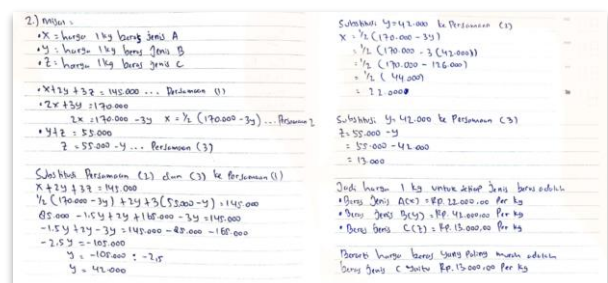 2.) misal :
• X = harga 1 kg beras jenis A
• y = harga 1 kg beras jenis B
• Z = harga 1 kg beras jenis C
• X+2y+3z = 145.000 ... Persamaan (1)
• 2x+3y = 170.000
2x = 170.000 - 3y X = ½ (170.000 - 3y) ... Persamaan 2
• y+z = 55.000
z = 55.000 - y ... Persamaan (3)
Substitusi Persamaan (2) dan (3) ke Persamaan (1)
X + 2y + 3z = 145.000
½ (170.000 - 3y) + 2y + 3(55.000 - y) = 145.000
85.000 - 1.5y + 2y + 165.000 - 3y = 145.000
-1.5y + 2y - 3y = 145.000 - 85.000 - 165.000
-2.5y = -105.000
y = -105.000 : -2,5
y = 42.000
Substitusi y = 42.000 ke Persamaan (2)
X = ½ (170.000 - 3y)
= ½ (170.000 - 3(42.000))
= ½ (170.000 - 126.000)
= ½ (44.000)
= 22.000
Substitusi y = 42.000 ke Persamaan (3)
z = 55.000 - y
= 55.000 - 42.000
= 13.000
Jadi harga 1 kg untuk setiap jenis beras adalah
• Beras Jenis A(x) = Rp. 22.000,00 Per kg
• Beras Jenis B(y) = Rp. 42.000,00 Per kg
• Beras Jenis C(z) = Rp. 13.000,00 Per kg
Berarti harga beras yang paling murah adalah
beras jenis C yaitu Rp. 13.000,00 Per kg